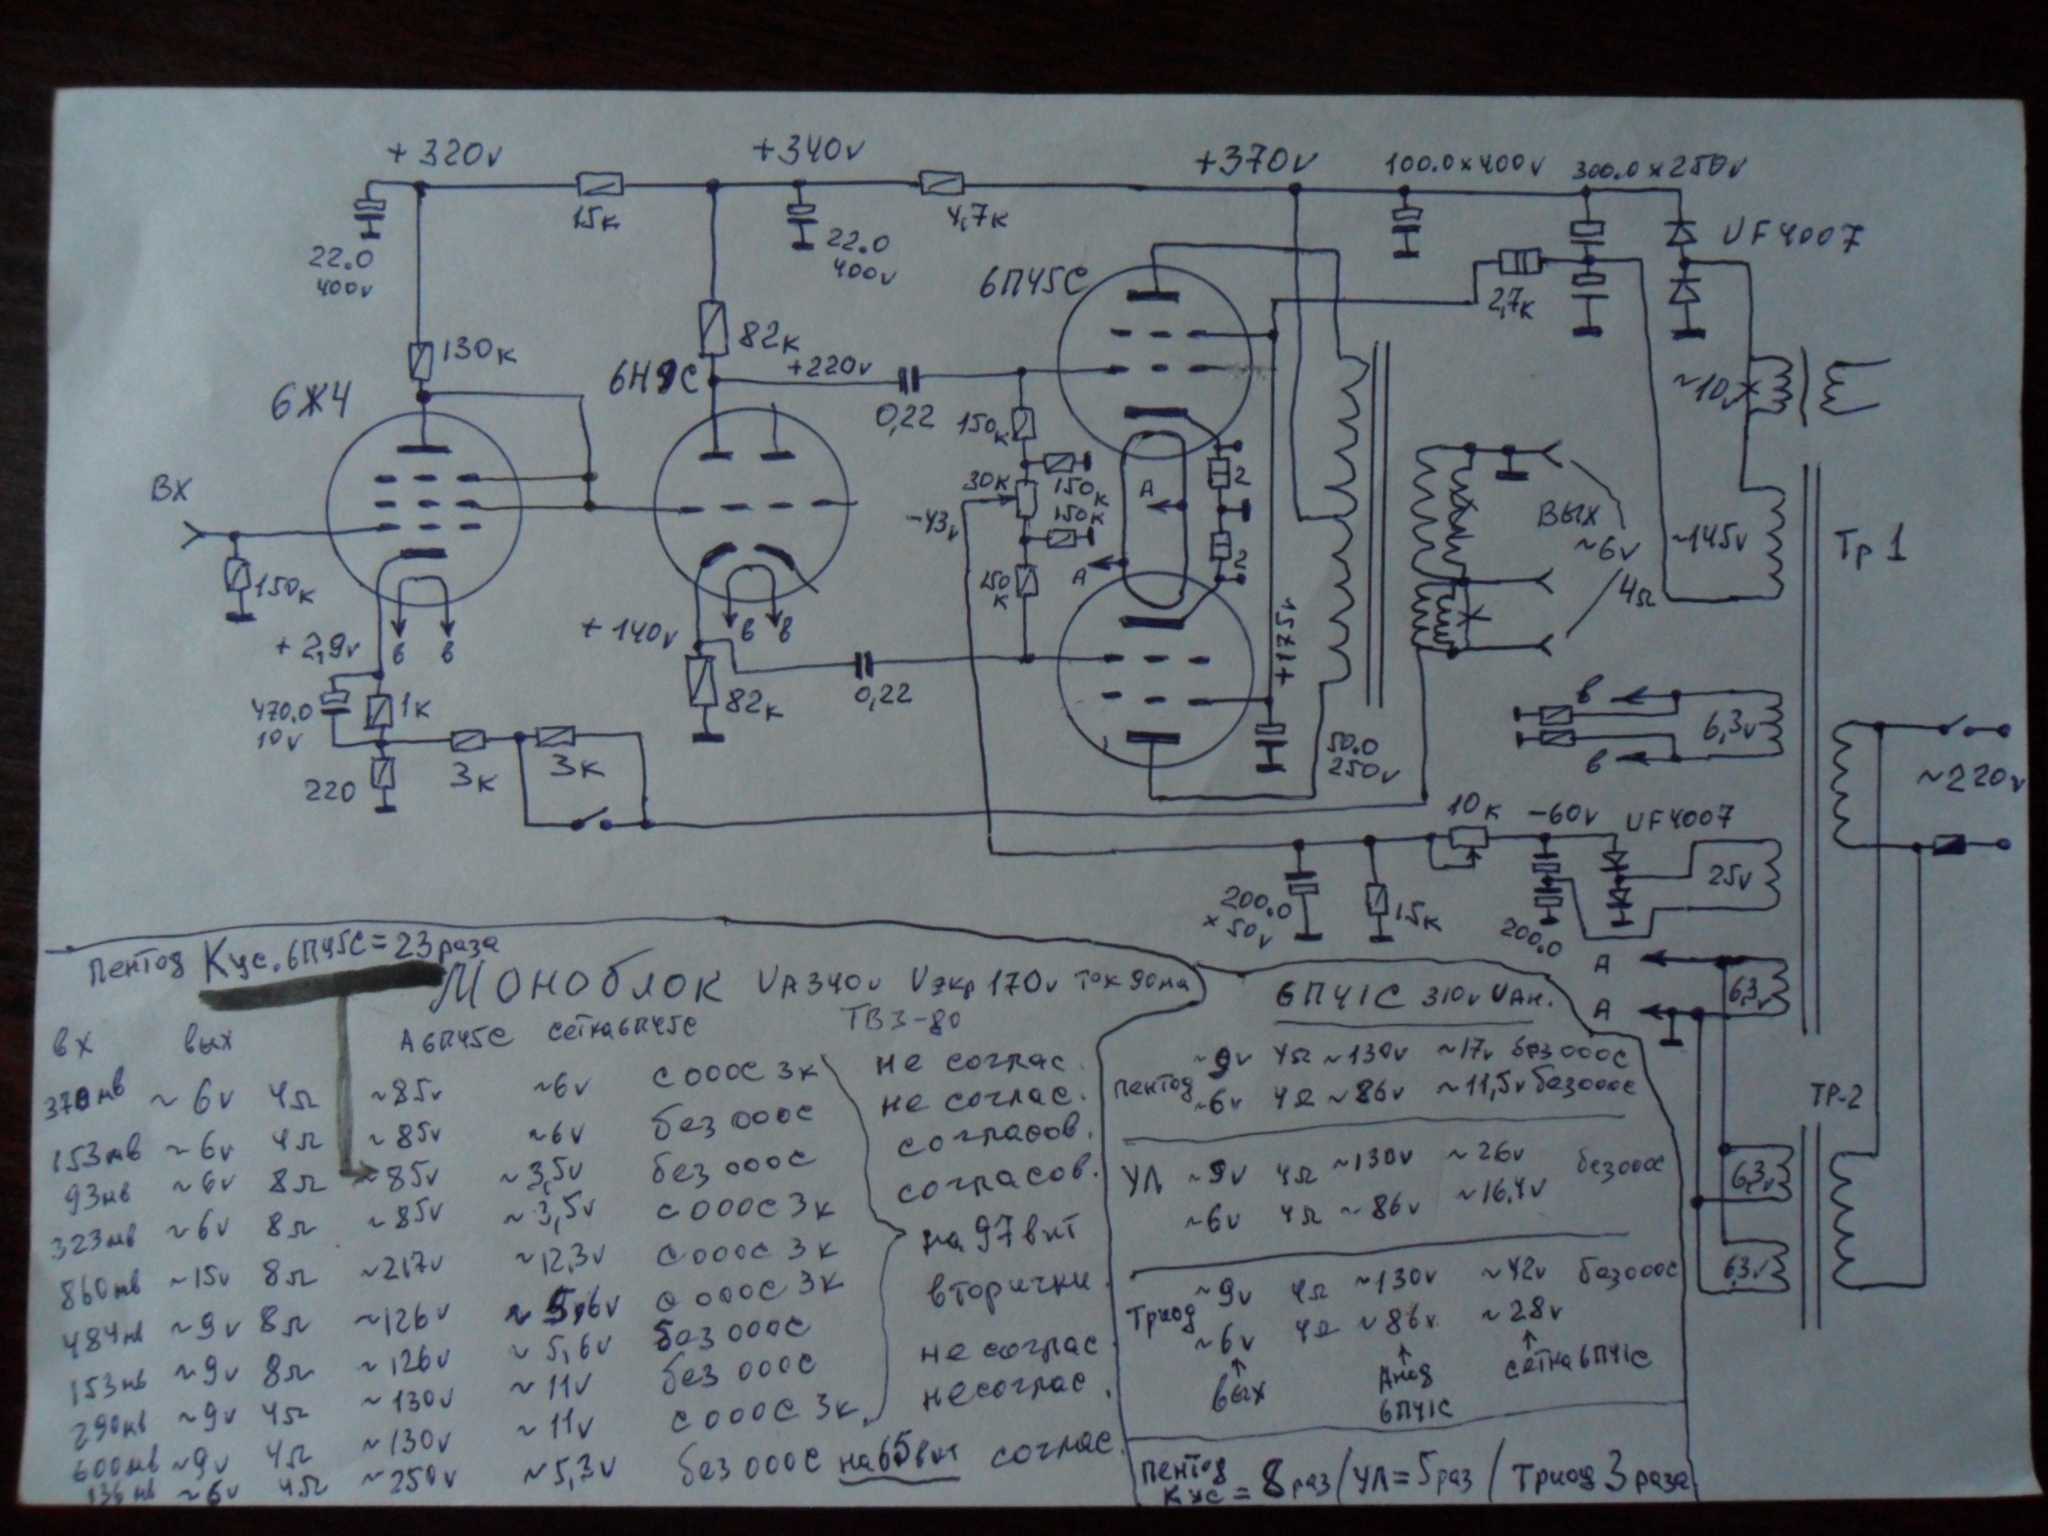 +320v
+340v
+370v
100.0x400v
300.0x250v
15к
4,7к
UF4007
22.0
400v
22.0
400v
6П45С
2,7к
130к
82к
+220v
6Ж4
6Н9С
0,22
150к
~10v
ВХ
30к
150к
150к
А
2
-43v
ВЫХ
~6v
4Ω
~145v
Тр1
2
А
150
к
150к
+2,9v
в
в
+140v
в
в
+175v
0,22
82к
470.0
10v
1к
3к
3к
220
50.0
250v
в
6,3v
в
~220v
10к
-60v
UF4007
25v
200.0
x50v
15к
200.0
А
А
6,3v
ТР-2
6,3v
6,3v
Пентод Кус.6П45С=23раза
Моноблок UА340v Uэкр170v ток90ма
ТВЗ-80
вх вых А6П45С сетка6П45С
370мв ~6v 4Ω ~85v ~6v с ооос 3к не соглас.
153мв ~6v 4Ω ~85v ~6v без ооос не соглас.
93мв ~6v 8Ω ~85v ~3,5v без ооос согласов.
323мв ~6v 8Ω ~85v ~3,5v с ооос 3к согласов.
860мв ~15v 8Ω ~217v ~12,3v с ооос 3к
на 97вит
вторички.
484мв ~9v 8Ω ~126v ~5,6v с ооос 3к
153мв ~9v 8Ω ~126v ~5,6v без ооос
290мв ~9v 4Ω ~130v ~11v без ооос не соглас.
600мв ~9v 4Ω ~130v ~11v с ооос 3к несоглас.
136мв ~6v 4Ω ~250v ~5,3v без ооос на65вит соглас.
6П41С 310v UАн.
Пентод
~9v 4Ω ~130v ~17v без ооос
~6v 4Ω ~86v ~11,5v без ооос
УЛ ~9v 4Ω ~130v ~26v без ооос
~6v 4Ω ~86v ~16,4v
Триод
~9v 4Ω ~130v ~42v без ооос
~6v 4Ω ~86v ~28v
вых
Анод
6П41С
сетка6П41С
Пентод
Кус = 8раз/УЛ=5раз/Триод 3раза